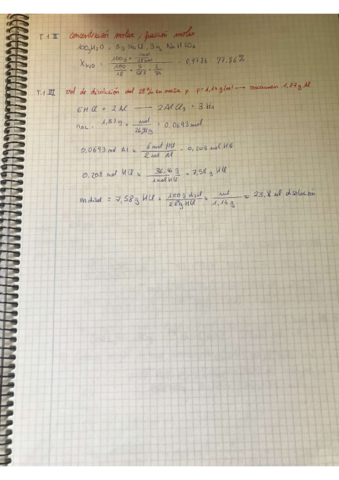 T.1 II concentración molar, fracción molar
100g H₂O - 5g NaCl, 3g NaHCO₃
X H₂O = 97,36 %
T.1 III vol de disolución del 28% en masa y ρ = 1,14 g/ml → consumen 1,87g Al
6 HCl + 2 Al → 2 AlCl₃ + 3 H₂
n AL = 1,87 g · mol / 26,98g = 0,0693 mol
0,0693 mol Al · 6 mol HCl / 2 mol Al = 0,208 mol HCl
0,208 mol HCl · 36,46 g / 1 mol HCl = 7,58 g HCl
m disol = 7,58 g HCl · 100 g disol / 28 g HCl · ml / 1,14 g = 23,8 ml disolución